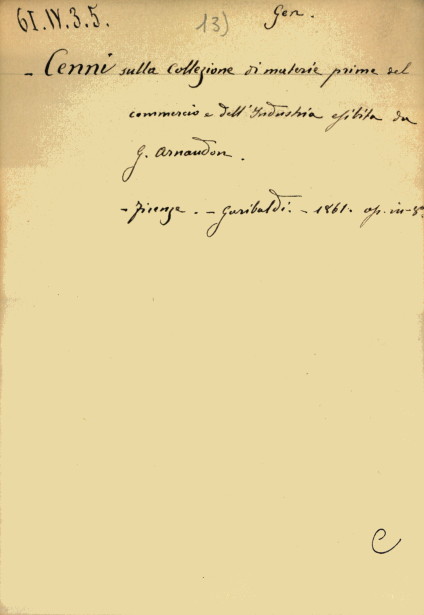 61.IV.3.5.
13)
Gen.
- Cenni sulla Collezione di materie prime del
commercio e dell'Industria esibita da
G. Arnaudon.
- Firenze. - Garibaldi. - 1861. op. in-8°.
C